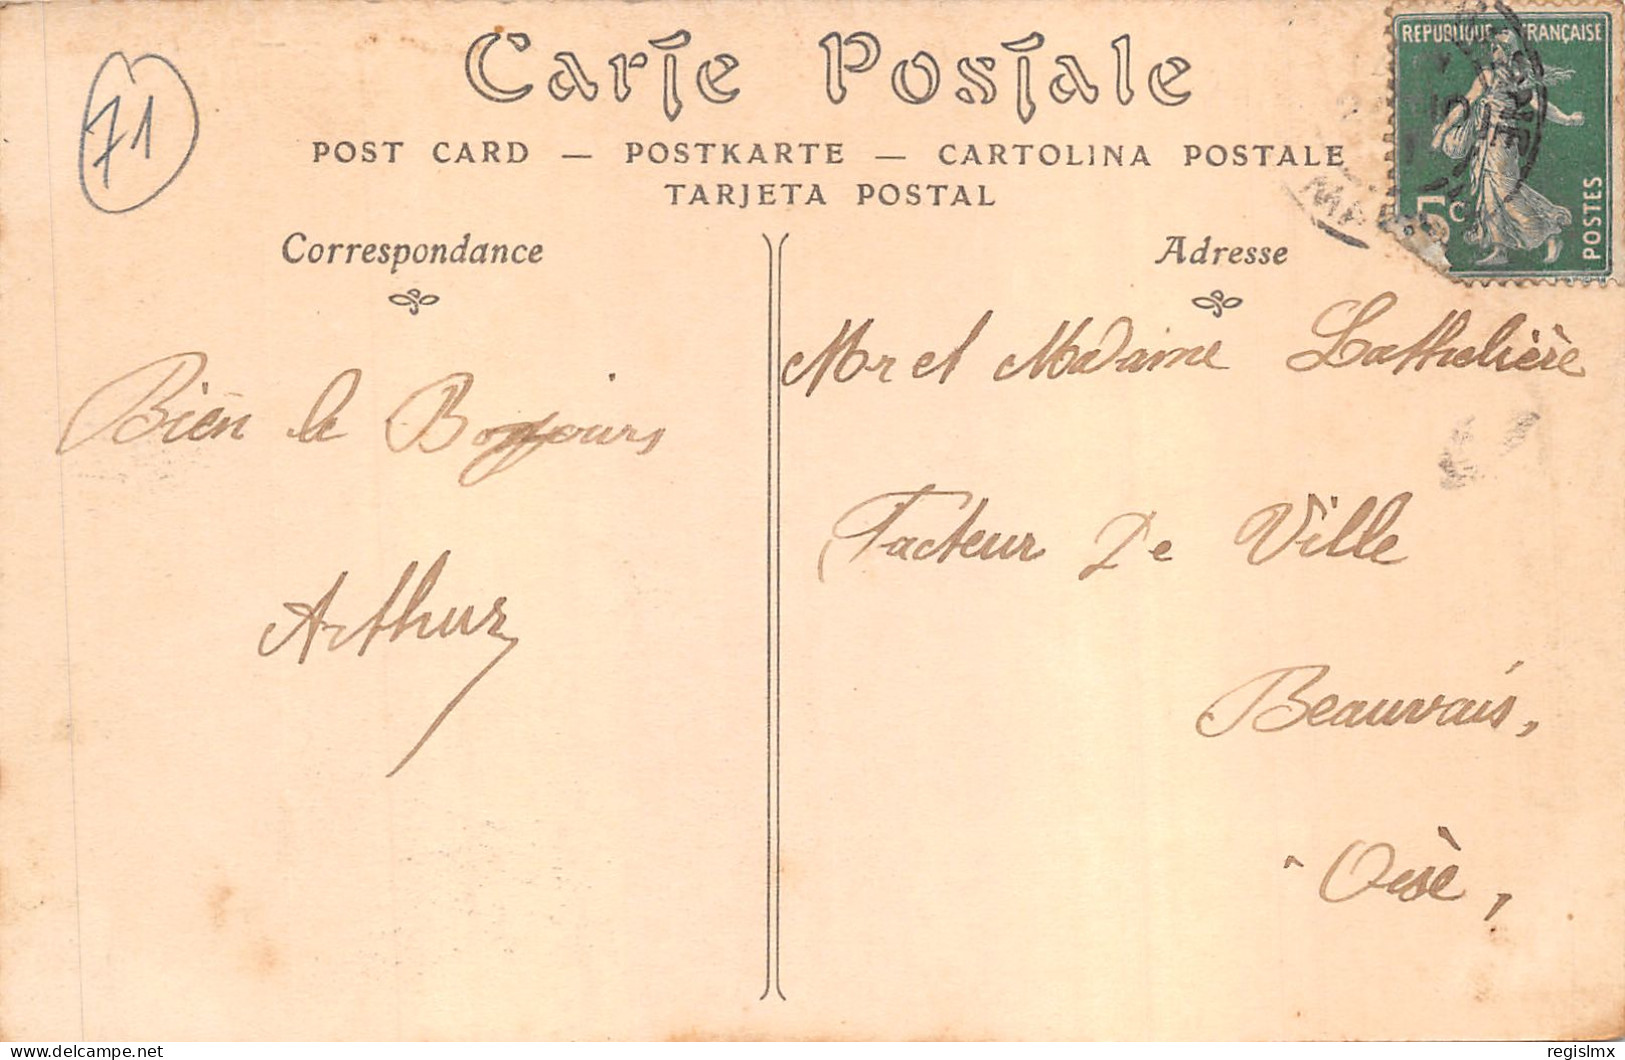 71
Carte Postale
POST CARD — POSTKARTE — CARTOLINA POSTALE
TARJETA POSTAL
Correspondance
Bien le Bonjours
Arthur
Adresse
RÉPUBLIQUE FRANÇAISE
5c
POSTES
Mr et Madame Lathelière
Facteur De Ville
Beauvais,
Oise,
delcampe.net
regislmx